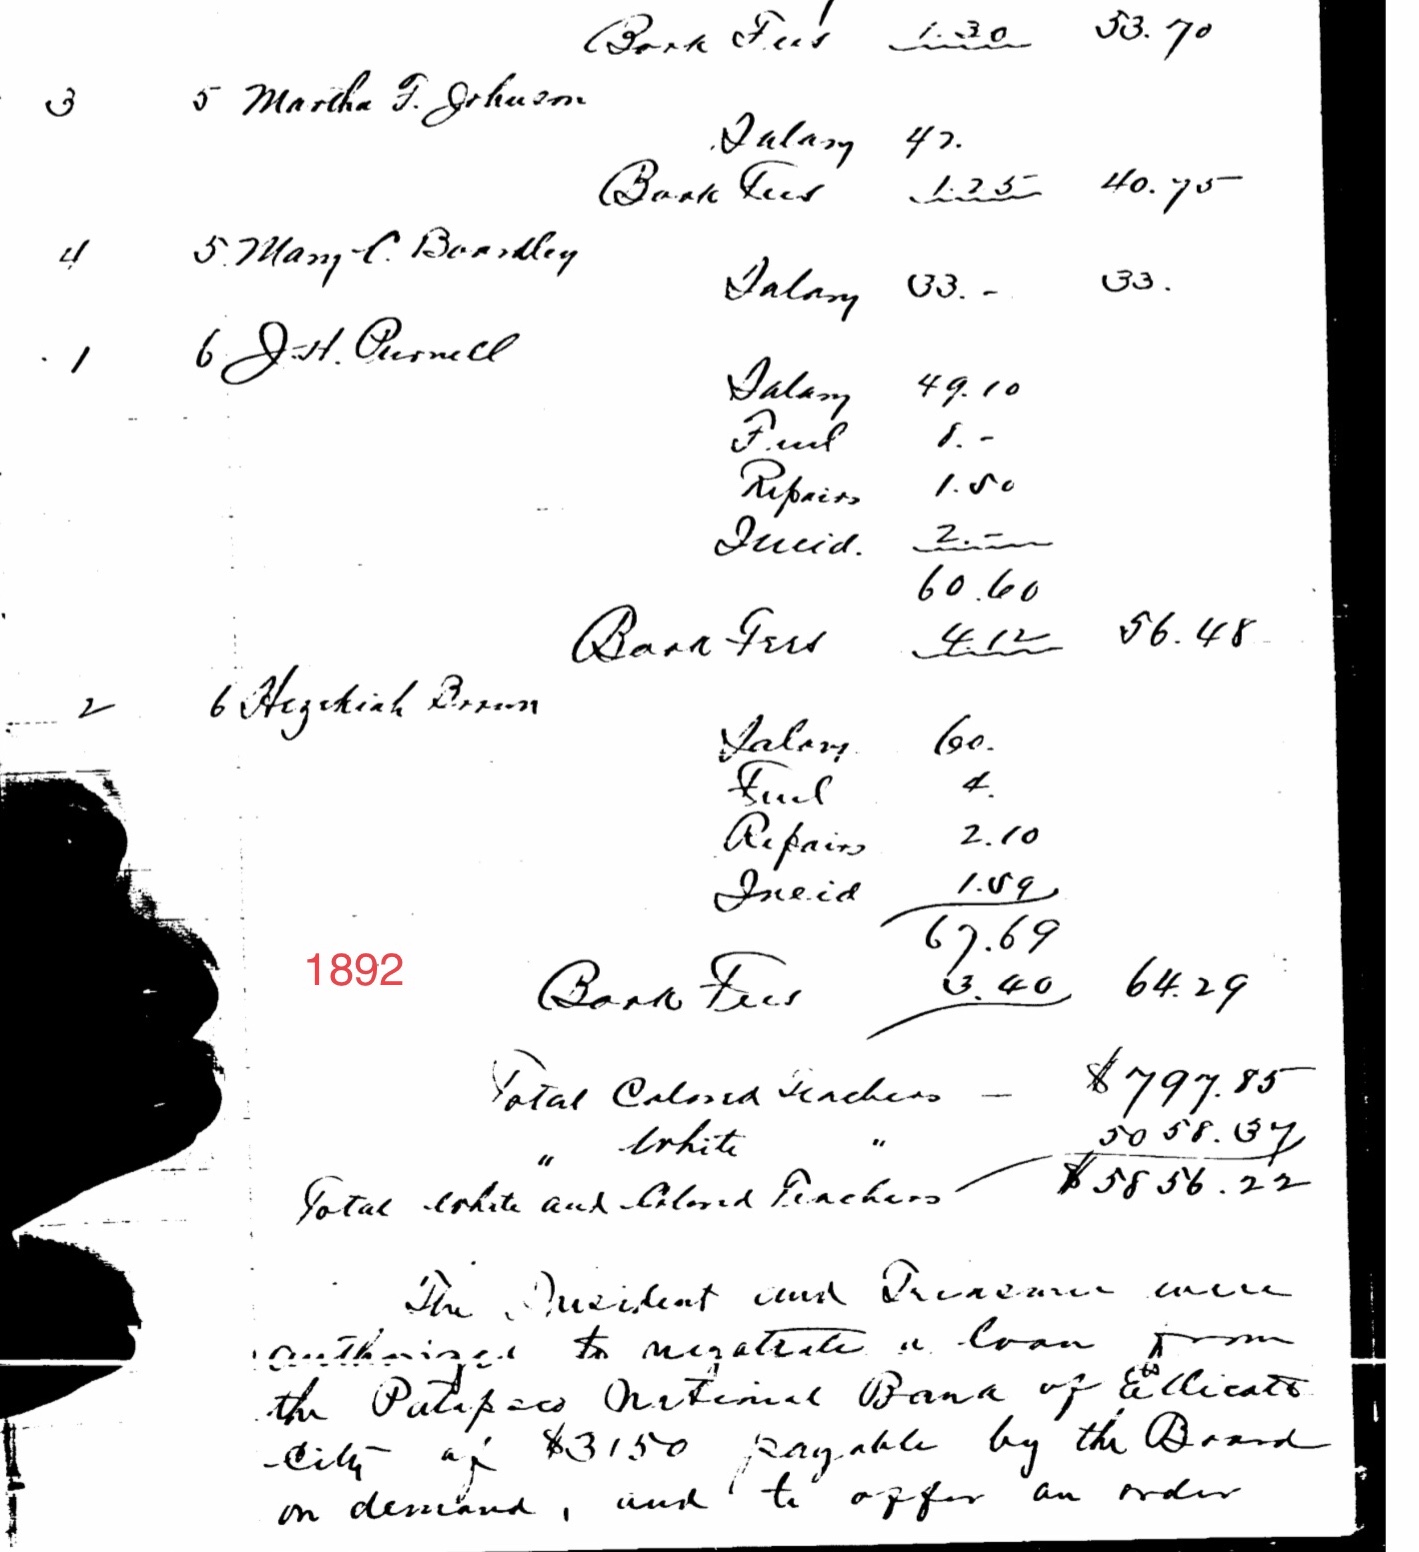 Book Fees 1.30 53.70
3 5 Martha F. Johnson
Salary 42.
Book Fees 1.25 40.75
4 5. Mary C. Boardley
Salary 33.- 33.
1 6 J.H. Purnell
Salary 49.10
Fuel 8.-
Repairs 1.50
Incid. 2.-
60.60
Book Fees 4.12 56.48
2 6 Hezekiah Brown
Salary 60.
Fuel 4.
Repairs 2.10
Incid 1.59
67.69
1892
Book Fees 3.40 64.29
Total Colored Teachers — $797.85
" White " 5058.37
Total White and Colored Teachers $5856.22
The President and Treasurer were
authorized to negotiate a loan from
the Patapsco National Bank of Ellicott
City of $3150 payable by the Board
on demand, and to offer an order